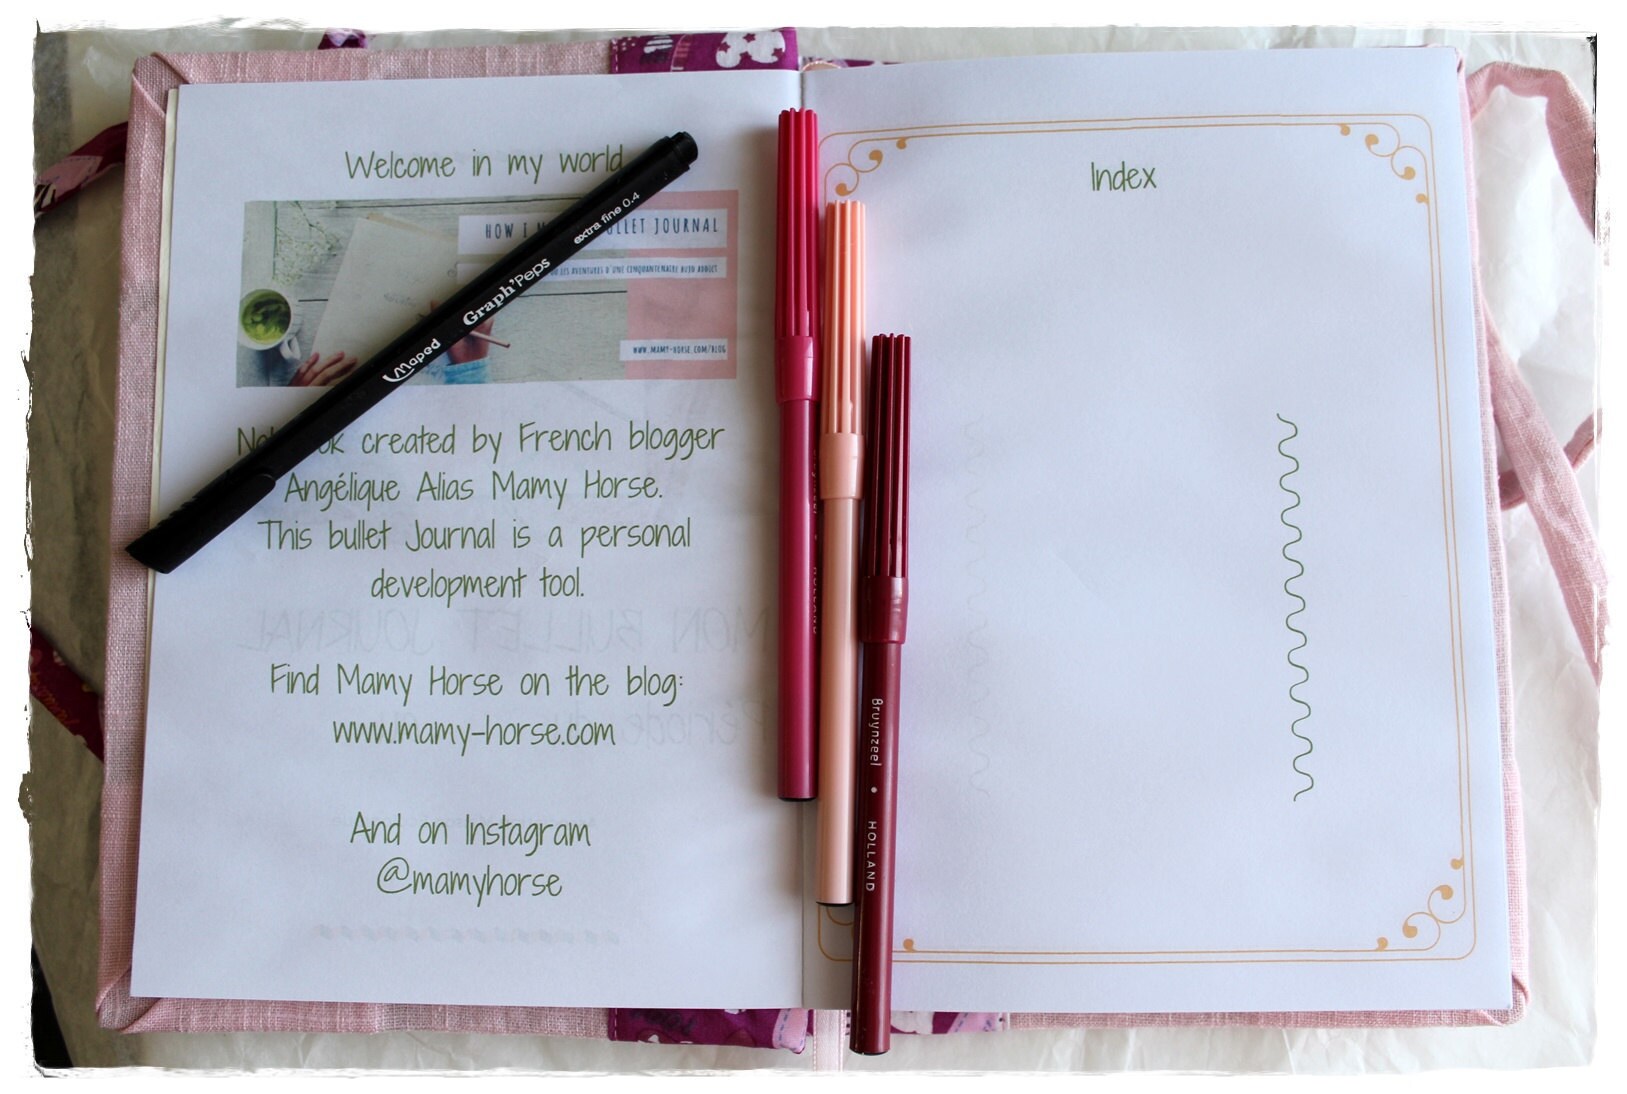 Welcome in my world
HOW I M ULLET JOURNAL
OU LES AVENTURES D'UNE CINQUANTENAIRE BUJO ADDICT
WWW.MAMY-HORSE.COM/BLOG
Notebook created by French blogger
Angélique Alias Mamy Horse.
This bullet Journal is a personal
development tool.
Find Mamy Horse on the blog:
www.mamy-horse.com
And on Instagram
@mamyhorse
Maped Graph'Peps extra fine 0.4
Bruynzeel • HOLLAND
HOLLAND
Index
MON BULLET JOURNAL
Période du